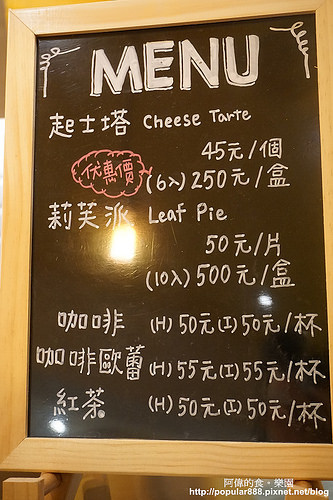 MENU
起士塔 Cheese Tarte
45元/個
伏惠價 (6入) 250元/盒
莉芙派 Leaf Pie
50元/片
(10入) 500元/盒
咖啡 (H) 50元 (I) 50元/杯
咖啡歐蕾 (H) 55元 (I) 55元/杯
紅茶 (H) 50元 (I) 50元/杯
阿偉的食。樂園
http://popular888.pixnet.net/blog